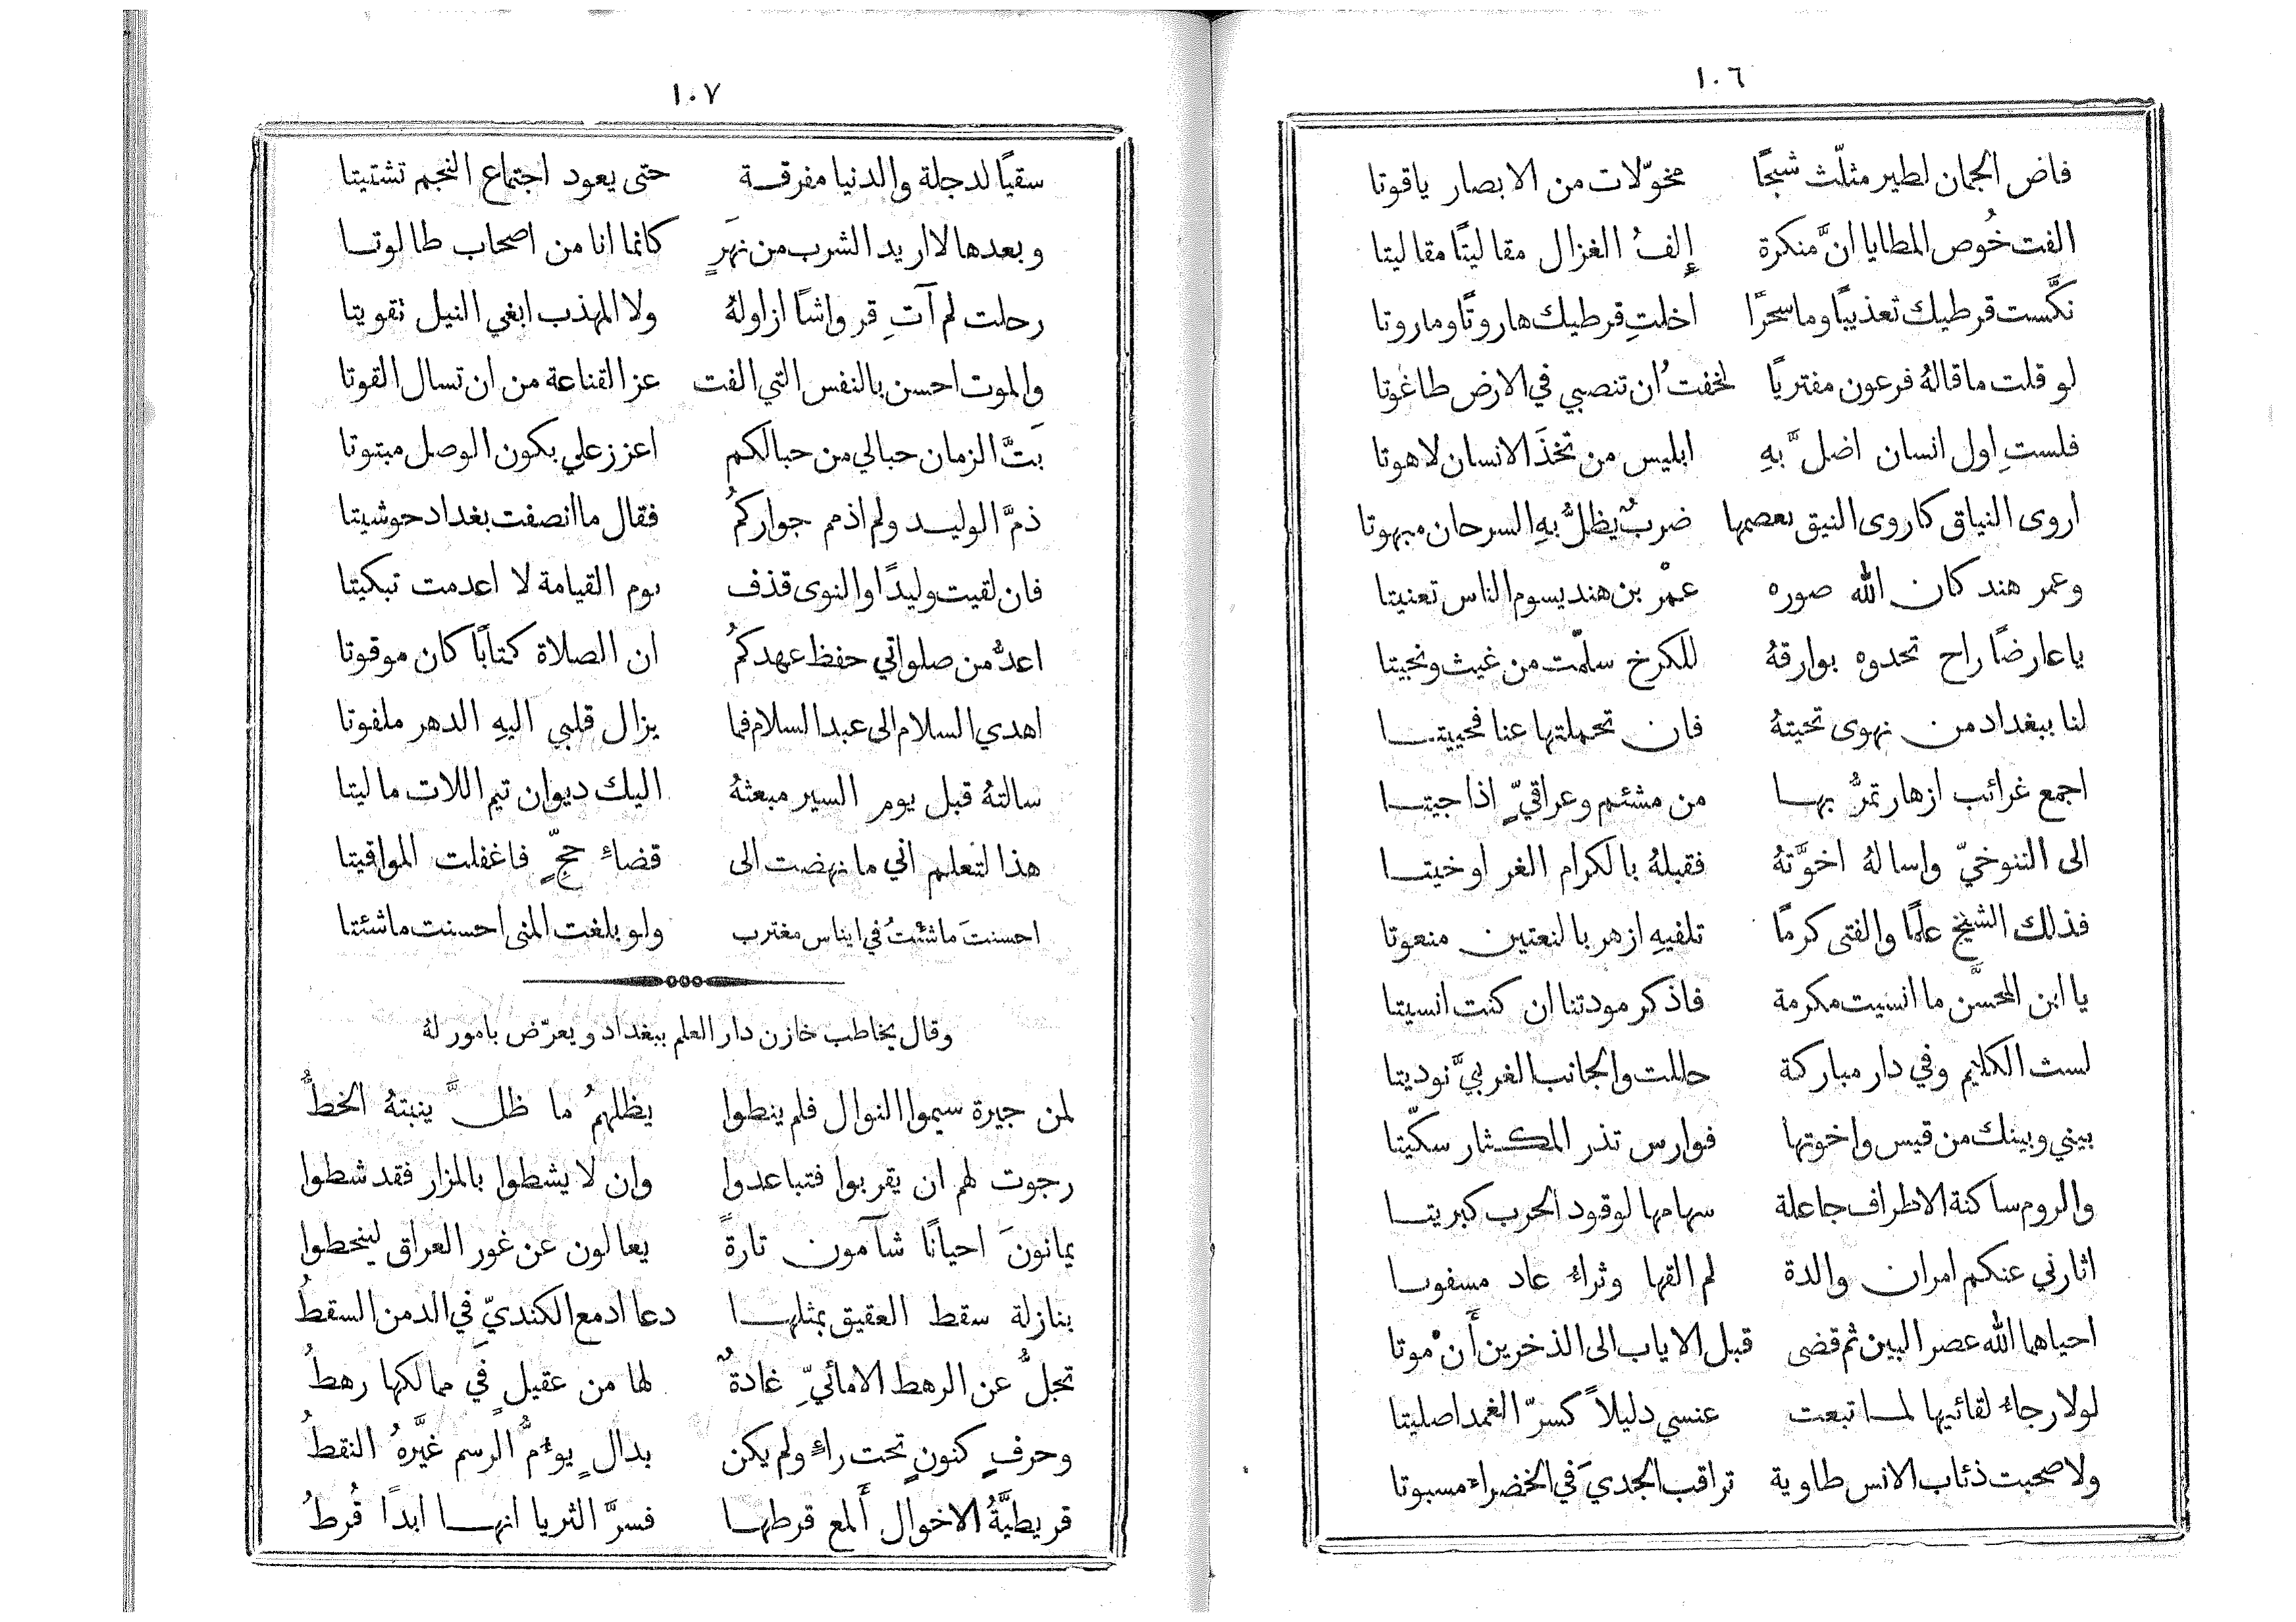 ١٠٦
فاض الجمان لطير مثلّث شبحًا مخوّلات من الابصار ياقوتا
الفت خُوص المطايا انّ منكرة إِلفُ الغزال مقاليتًا مقاليتا
نكَّست قرطيك تعذيبًا وما سحرًا اخلتِ قرطيك هاروتًا وماروتا
لو قلت ما قالهُ فرعون مفتريًا لخفتُ ان تنصبي في الارض طاغوتا
فلستِ اول انسان اضلَّ بهِ ابليس من تخذَ الانسان لاهوتا
اروى النياق كاروى النيق يعصمها ضربٌ يظلُّ بهِ السرحان مبهوتا
وعمر هند كان الله صوره عمْر بن هند يسوم الناس تعنيتا
يا عارضًا راح تحدوه بوارقهُ للكرخ سلّمت من غيث ونجيتا
لنا ببغداد من نهوى تحيتهُ فان تحملتها عنا فحييتا
اجمع غرائب ازهار تمرُّ بها من مشئم وعراقيٍّ اذا جيتا
الى التنوخيّ واسالهُ اخوَّتهُ فقبلهُ بالكرام الغر اوخيتا
فذلك الشيخ علمًا والفتى كرمًا تلفيهِ ازهر بالنعتين منعوتا
يا ابن المحسَّن ما انسيت مكرمة فاذكر مودتنا ان كنت انسيتا
لست الكليم وفي دار مباركة حللت والجانب الغربيَّ نوديتا
بيني وبينك من قيس واخوتها فوارس تذر المكثار سكّيتا
والروم ساكنة الاطراف جاعلة سهامها لوقود الحرب كبريتا
اثارني عنكم امران والدة لم القها وثراءٌ عاد مسفوتا
احياهما الله عصر البين ثم قضى قبل الاياب الى الذخرين أَنْ موتا
لولا رجاء لقائيها لما تبعت عنسي دليلاً كسرّ الغمد اصليتا
ولا صحبت ذئاب الانس طاوية تراقب الجديَ في الخضراء مسبوتا
١٠٧
سقيًا لدجلة والدنيا مفرقة حتى يعود اجتماع النجم تشتيتا
وبعدها لا اريد الشرب من نهَرٍ كانما انا من اصحاب طالوتا
رحلت لم آتِ قرواشًا ازاولهُ ولا المهذب ابغي النيل تقويتا
والموت احسن بالنفس التي الفت عز القناعة من ان تسال القوتا
بَتَّ الزمان حبالي من حبالكم اعزز علي بكون الوصل مبتوتا
ذمَّ الوليد ولم اذمم جواركمُ فقال ما انصفت بغداد حوشيتا
فان لقيت وليدًا والنوى قذف يوم القيامة لا اعدمت تبكيتا
اعدُّ من صلواتي حفظ عهدكمُ ان الصلاة كتابًا كان موقوتا
اهدي السلام الى عبد السلام فما يزال قلبي اليهِ الدهر ملفوتا
سالتهُ قبل يوم السير مبعثهُ اليك ديوان تيم اللات ما ليتا
هذا لتعلم اني ما نهضت الى قضاءِ حجٍّ فاغفلت المواقيتا
احسنتَ ما شئتُ في ايناس مغترب ولو بلغت المنى احسنت ما شئتا
وقال يخاطب خازن دار العلم ببغداد ويعرّض بامور لهُ
لمن جيرة سيموا النوال فلم ينطوا يظلهمُ ما ظلَّ ينبتهُ الخطُّ
رجوت لهم ان يقربوا فتباعدوا وان لا يشطوا بالمزار فقد شطوا
يمانونَ احيانًا شآمون تارةً يعالون عن غور العراق لينحطوا
بنازلة سقط العقيق بمثلها دعا ادمع الكنديّ في الدمن السقطُ
تجلُّ عن الرهط الامائيِّ غادةٌ لها من عقيلٍ في ممالكها رهطُ
وحرفٍ كنونٍ تحت راءٍ ولم يكن بدالٍ يؤمُّ الرسم غيَّرهُ النقطُ
قريطيَّةُ الاخوال أَلمع قرطها فسرَّ الثريا انها ابدًا قُرطُ